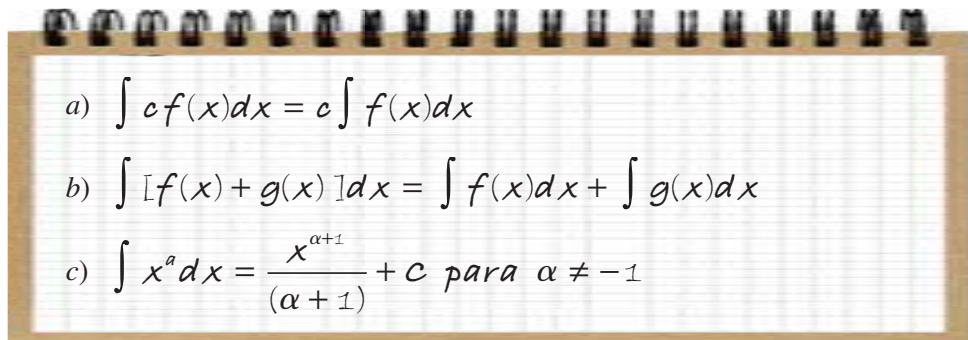 a) ∫ c f(x)dx = c ∫ f(x)dx
b) ∫ [f(x) + g(x) ]dx = ∫ f(x)dx + ∫ g(x)dx
c) ∫ xᵃ dx = x^(α+1)/(α + 1) + C para α ≠ −1